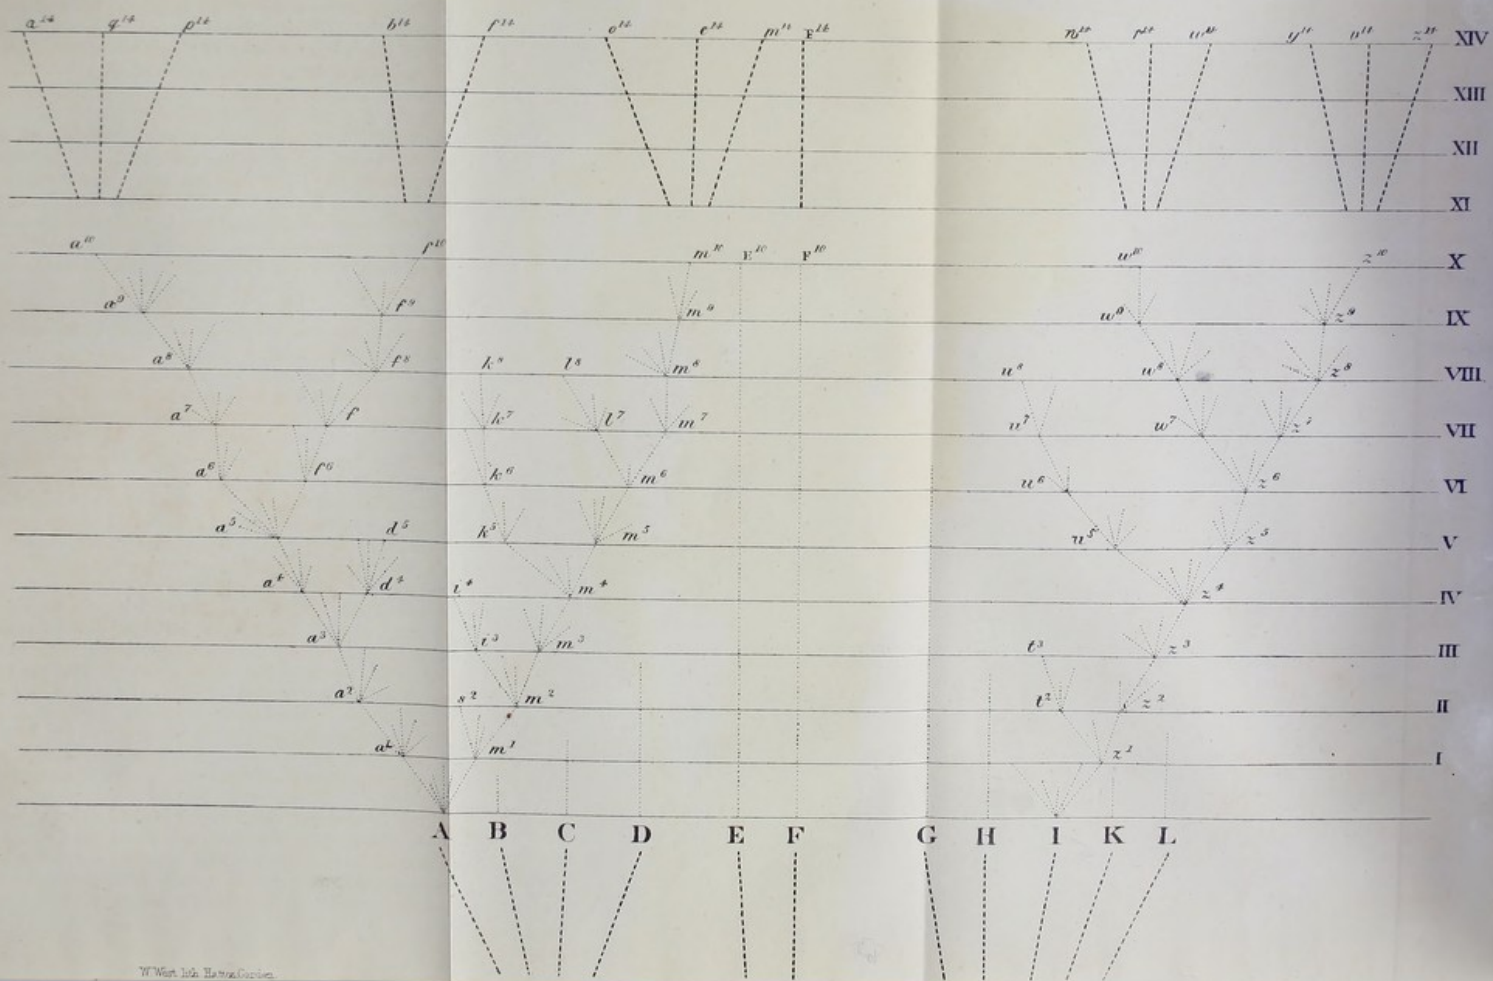 a¹⁴ q¹⁴ p¹⁴ b¹⁴ f¹⁴ o¹⁴ e¹⁴ m¹⁴ F¹⁴ n¹⁴ r¹⁴ w¹⁴ y¹⁴ v¹⁴ z¹⁴ XIV
XIII
XII
XI
a¹⁰ f¹⁰ m¹⁰ E¹⁰ F¹⁰ w¹⁰ z¹⁰ X
a⁹ f⁹ m⁹ w⁹ z⁹ IX
a⁸ f⁸ k⁸ l⁸ m⁸ u⁸ w⁸ z⁸ VIII
a⁷ f k⁷ l⁷ m⁷ u⁷ w⁷ z⁷ VII
a⁶ f⁶ k⁶ m⁶ u⁶ z⁶ VI
a⁵ d⁵ k⁵ m⁵ u⁵ z⁵ V
a⁴ d⁴ i⁴ m⁴ z⁴ IV
a³ i³ m³ t³ z³ III
a² s² m² t² z² II
a¹ m¹ z¹ I
A B C D E F G H I K L
W. West lith. Hatton Garden